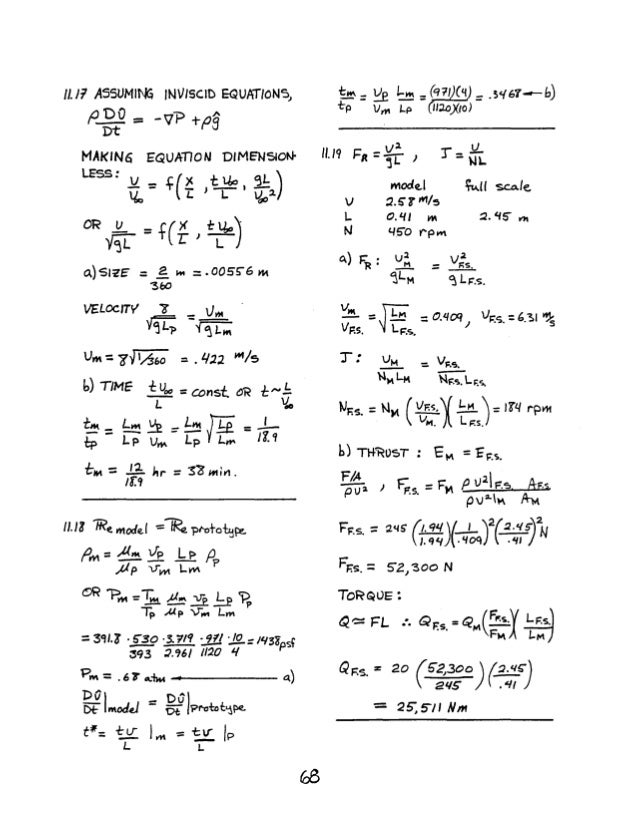 11.17 ASSUMING INVISCID EQUATIONS,
ρDῡ/Dt = -∇P + ρĝ
MAKING EQUATION DIMENSION-
LESS:
v/v∞ = f(x/L, tv∞/L, gL/v∞²)
OR v/√gL = f(x/L, tv∞/L)
a) SIZE = 2/360 m = .00556 m
VELOCITY 8/√gLp = vm/√gLm
vm = 8√1/360 = .422 m/s
b) TIME tv∞/L = const. OR t~L/v∞
tm/tp = Lm/Lp vp/vm = Lm/Lp √Lp/Lm = 1/18.9
tm = 12/18.9 hr = 38 min.
11.18 Re model = Re prototype
ρm = μm/μp vp/vm Lp/Lm ρp
OR Pm = Tm/Tp μm/μp vp/vm Lp/Lm Pp
= 391.8 · 530/393 · 3.719/2.961 · 971/1120 · 10/4 = 1438psf
Pm = .68 atm a)
Dῡ/Dt|model = Dῡ/Dt|prototype
t* = tv/L|m = tv/L|p
tm/tp = vp/vm Lm/Lp = (971)(4)/(1120)(10) = .3468 b)
11.19 FR = v²/gL, J = v/NL
model full scale
v 2.58 m/s
L 0.41 m 2.45 m
N 450 rpm
a) FR: v²M/gLM = v²F.S./gLF.S.
vm/vF.S. = √LM/LF.S. = 0.409, vF.S. = 6.31 m/s
J: vM/NMLM = vF.S./NF.S.LF.S.
NF.S. = NM (vF.S./vM.)(LM/LF.S.) = 184 rpm
b) THRUST: EM = EF.S.
F/A/ρv², FF.S. = FM ρv²|F.S./ρv²|M AF.S/AM
FF.S. = 245 (1.94/1.94)(1/.409)²(2.45/.41)² N
FF.S. = 52,300 N
TORQUE:
Q≃FL ∴ QF.S. = QM(FF.S./FM)(LF.S./LM)
QF.S. = 20 (52,300/245)(2.45/.41)
= 25,511 Nm
68